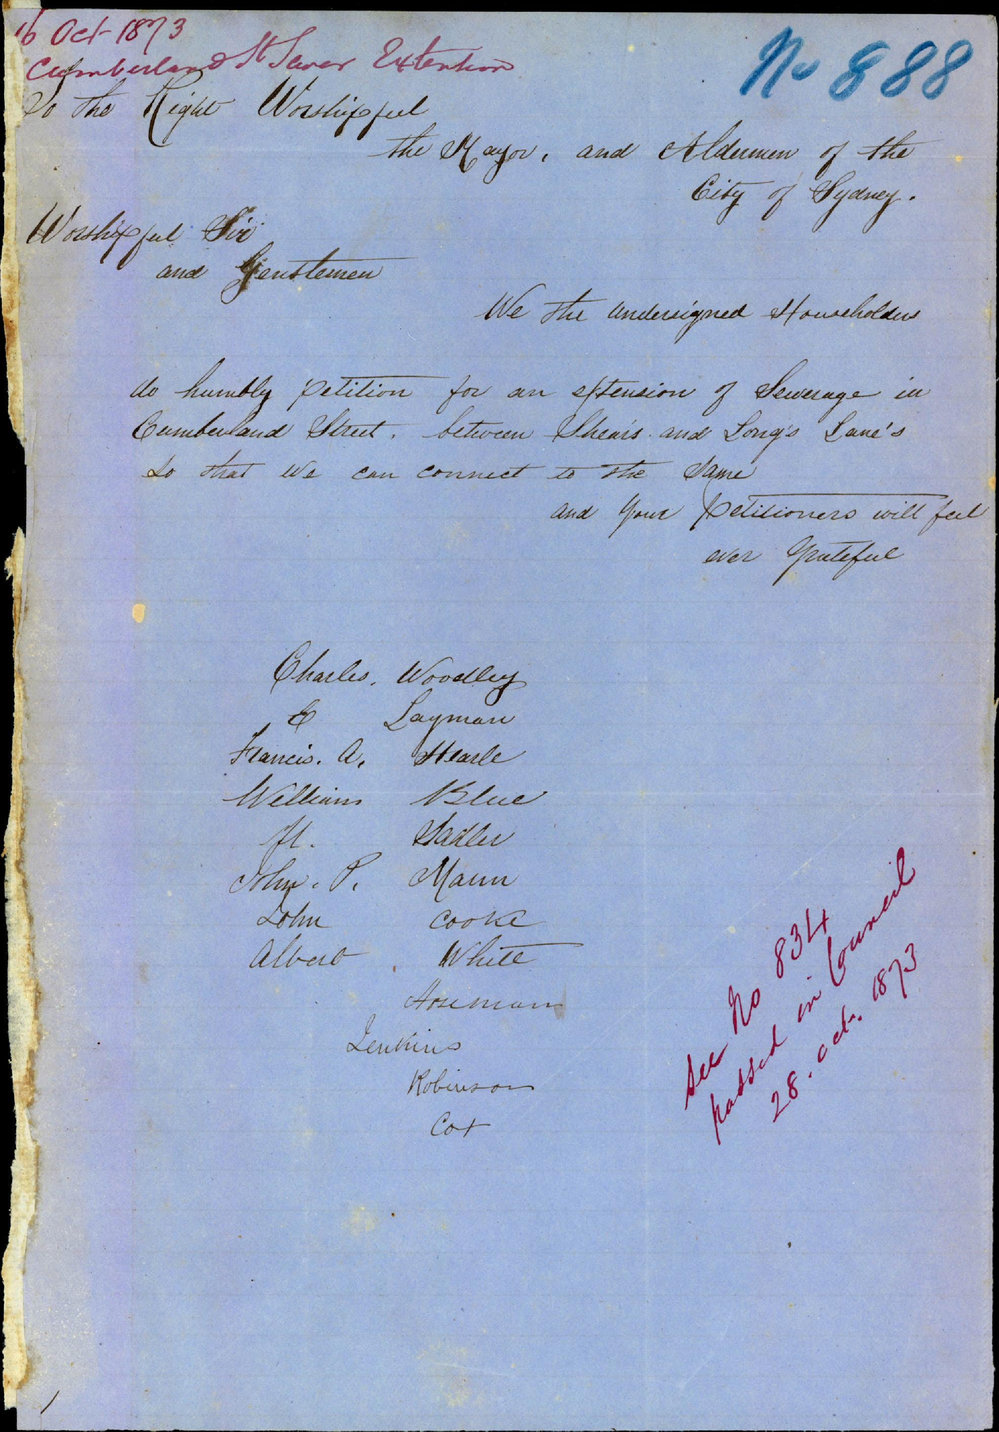 16 Oct 1873
Cumberland St Sewer Extention
No 888
To the Right Worshipful
the Mayor, and Aldermen of the
City of Sydney.
Worshipful Sir
and Gentlemen
We the undersigned Householders
do humbly petition for an extension of Sewerage in
Cumberland Street. between Shears and Long's Lane's
so that we can connect to the same
and your Petitioners will feel
ever Grateful
Charles. Woodley
E Layman
Francis. A. Hearle
William Blue
H. Sadler
John. P. Mann
John Cooke
Albert White
Jenkins
Robinson
Cox
See No 834
passed in Council
28. Oct. 1873